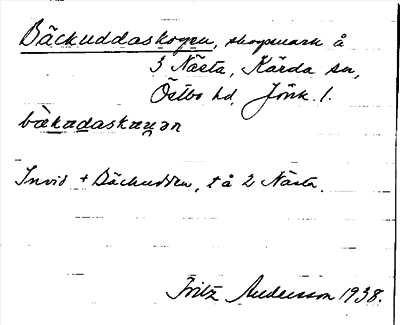 Bäckuddaskogen, skogsmark å
3 Nästa, Kärda sn,
Östbo hd, Jönk. l.
bäkadaskaγən
Invid + Bäckudden, t å 2 Nästa.
Fritz Andersson 1938.